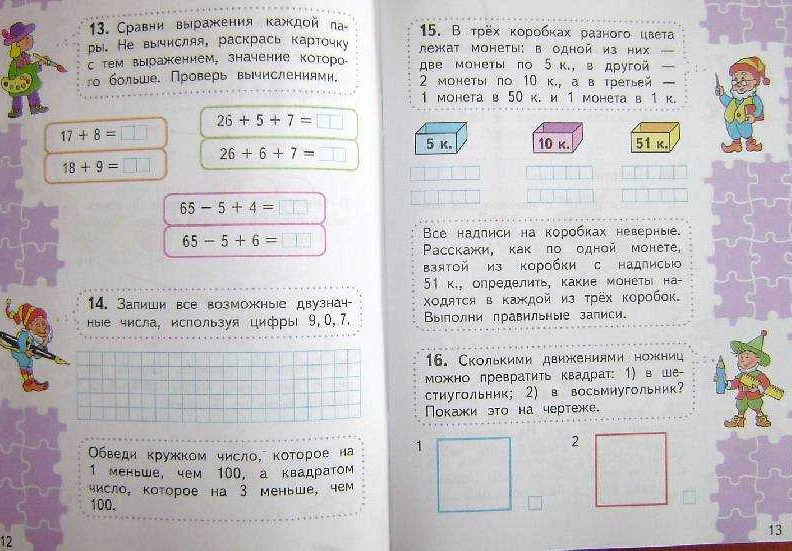 13. Сравни выражения каждой па-
ры. Не вычисляя, раскрась карточку
с тем выражением, значение которо-
го больше. Проверь вычислениями.
17 + 8 =
18 + 9 =
26 + 5 + 7 =
26 + 6 + 7 =
65 − 5 + 4 =
65 − 5 + 6 =
14. Запиши все возможные двузнач-
ные числа, используя цифры 9, 0, 7.
Обведи кружком число, которое на
1 меньше, чем 100, а квадратом
число, которое на 3 меньше, чем
100.
12
15. В трёх коробках разного цвета
лежат монеты: в одной из них —
две монеты по 5 к., в другой —
2 монеты по 10 к., а в третьей —
1 монета в 50 к. и 1 монета в 1 к.
5 к.
10 к.
51 к.
Все надписи на коробках неверные.
Расскажи, как по одной монете,
взятой из коробки с надписью
51 к., определить, какие монеты на-
ходятся в каждой из трёх коробок.
Выполни правильные записи.
16. Сколькими движениями ножниц
можно превратить квадрат: 1) в ше-
стиугольник; 2) в восьмиугольник?
Покажи это на чертеже.
1
2
13